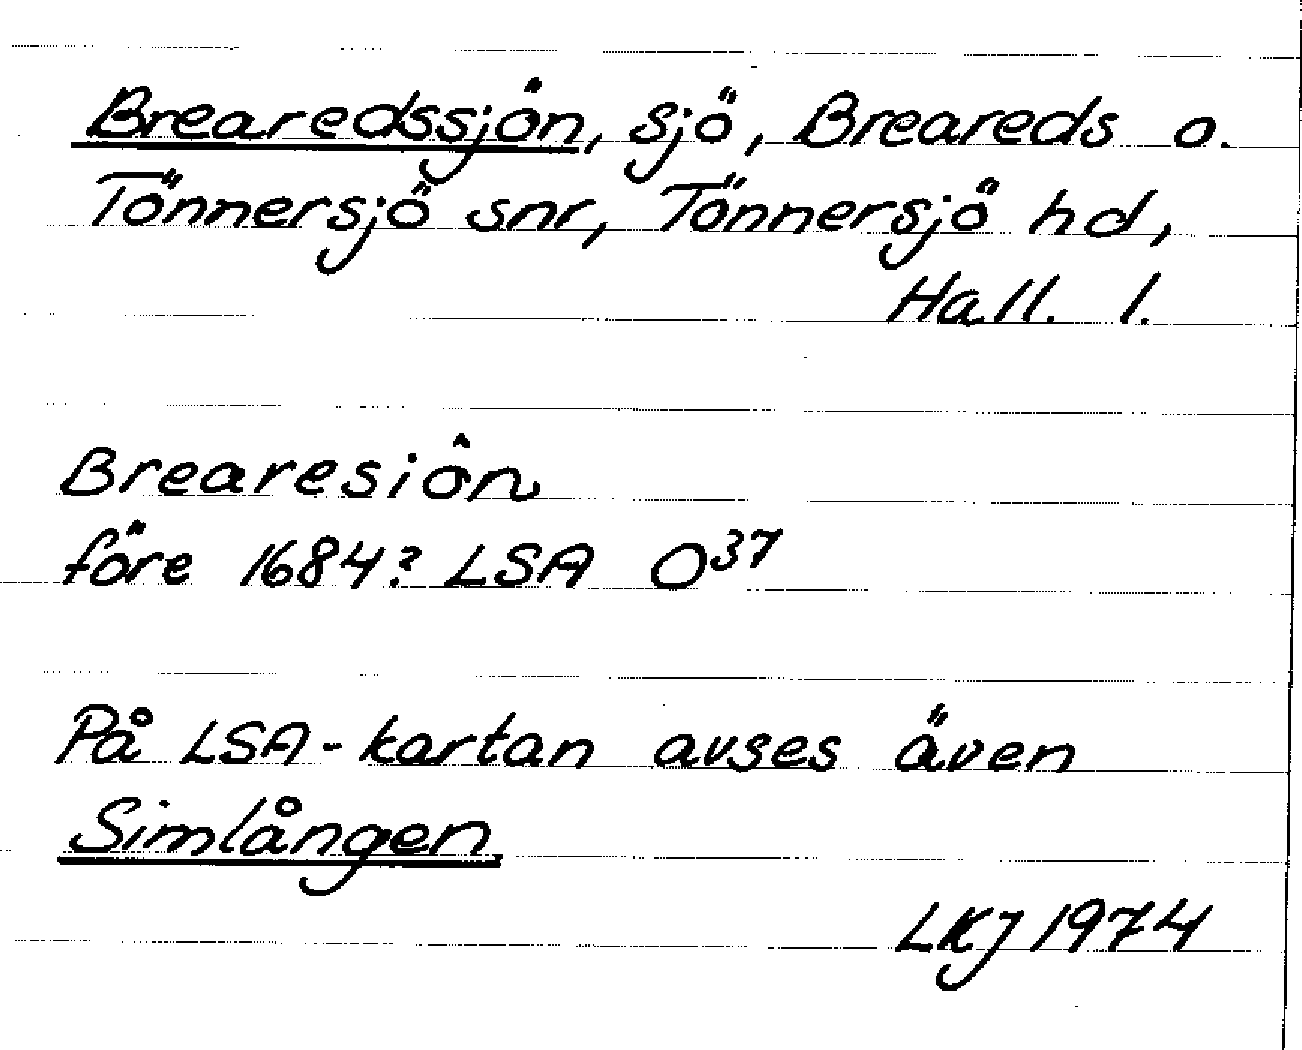 Brearedssjön, sjö, Breareds o.
Tönnersjö snr, Tönnersjö hd,
Hall. l.
Brearesiôn
före 1684? LSA O³⁷
På LSA-kartan avses även
Simlången
LKJ 1974